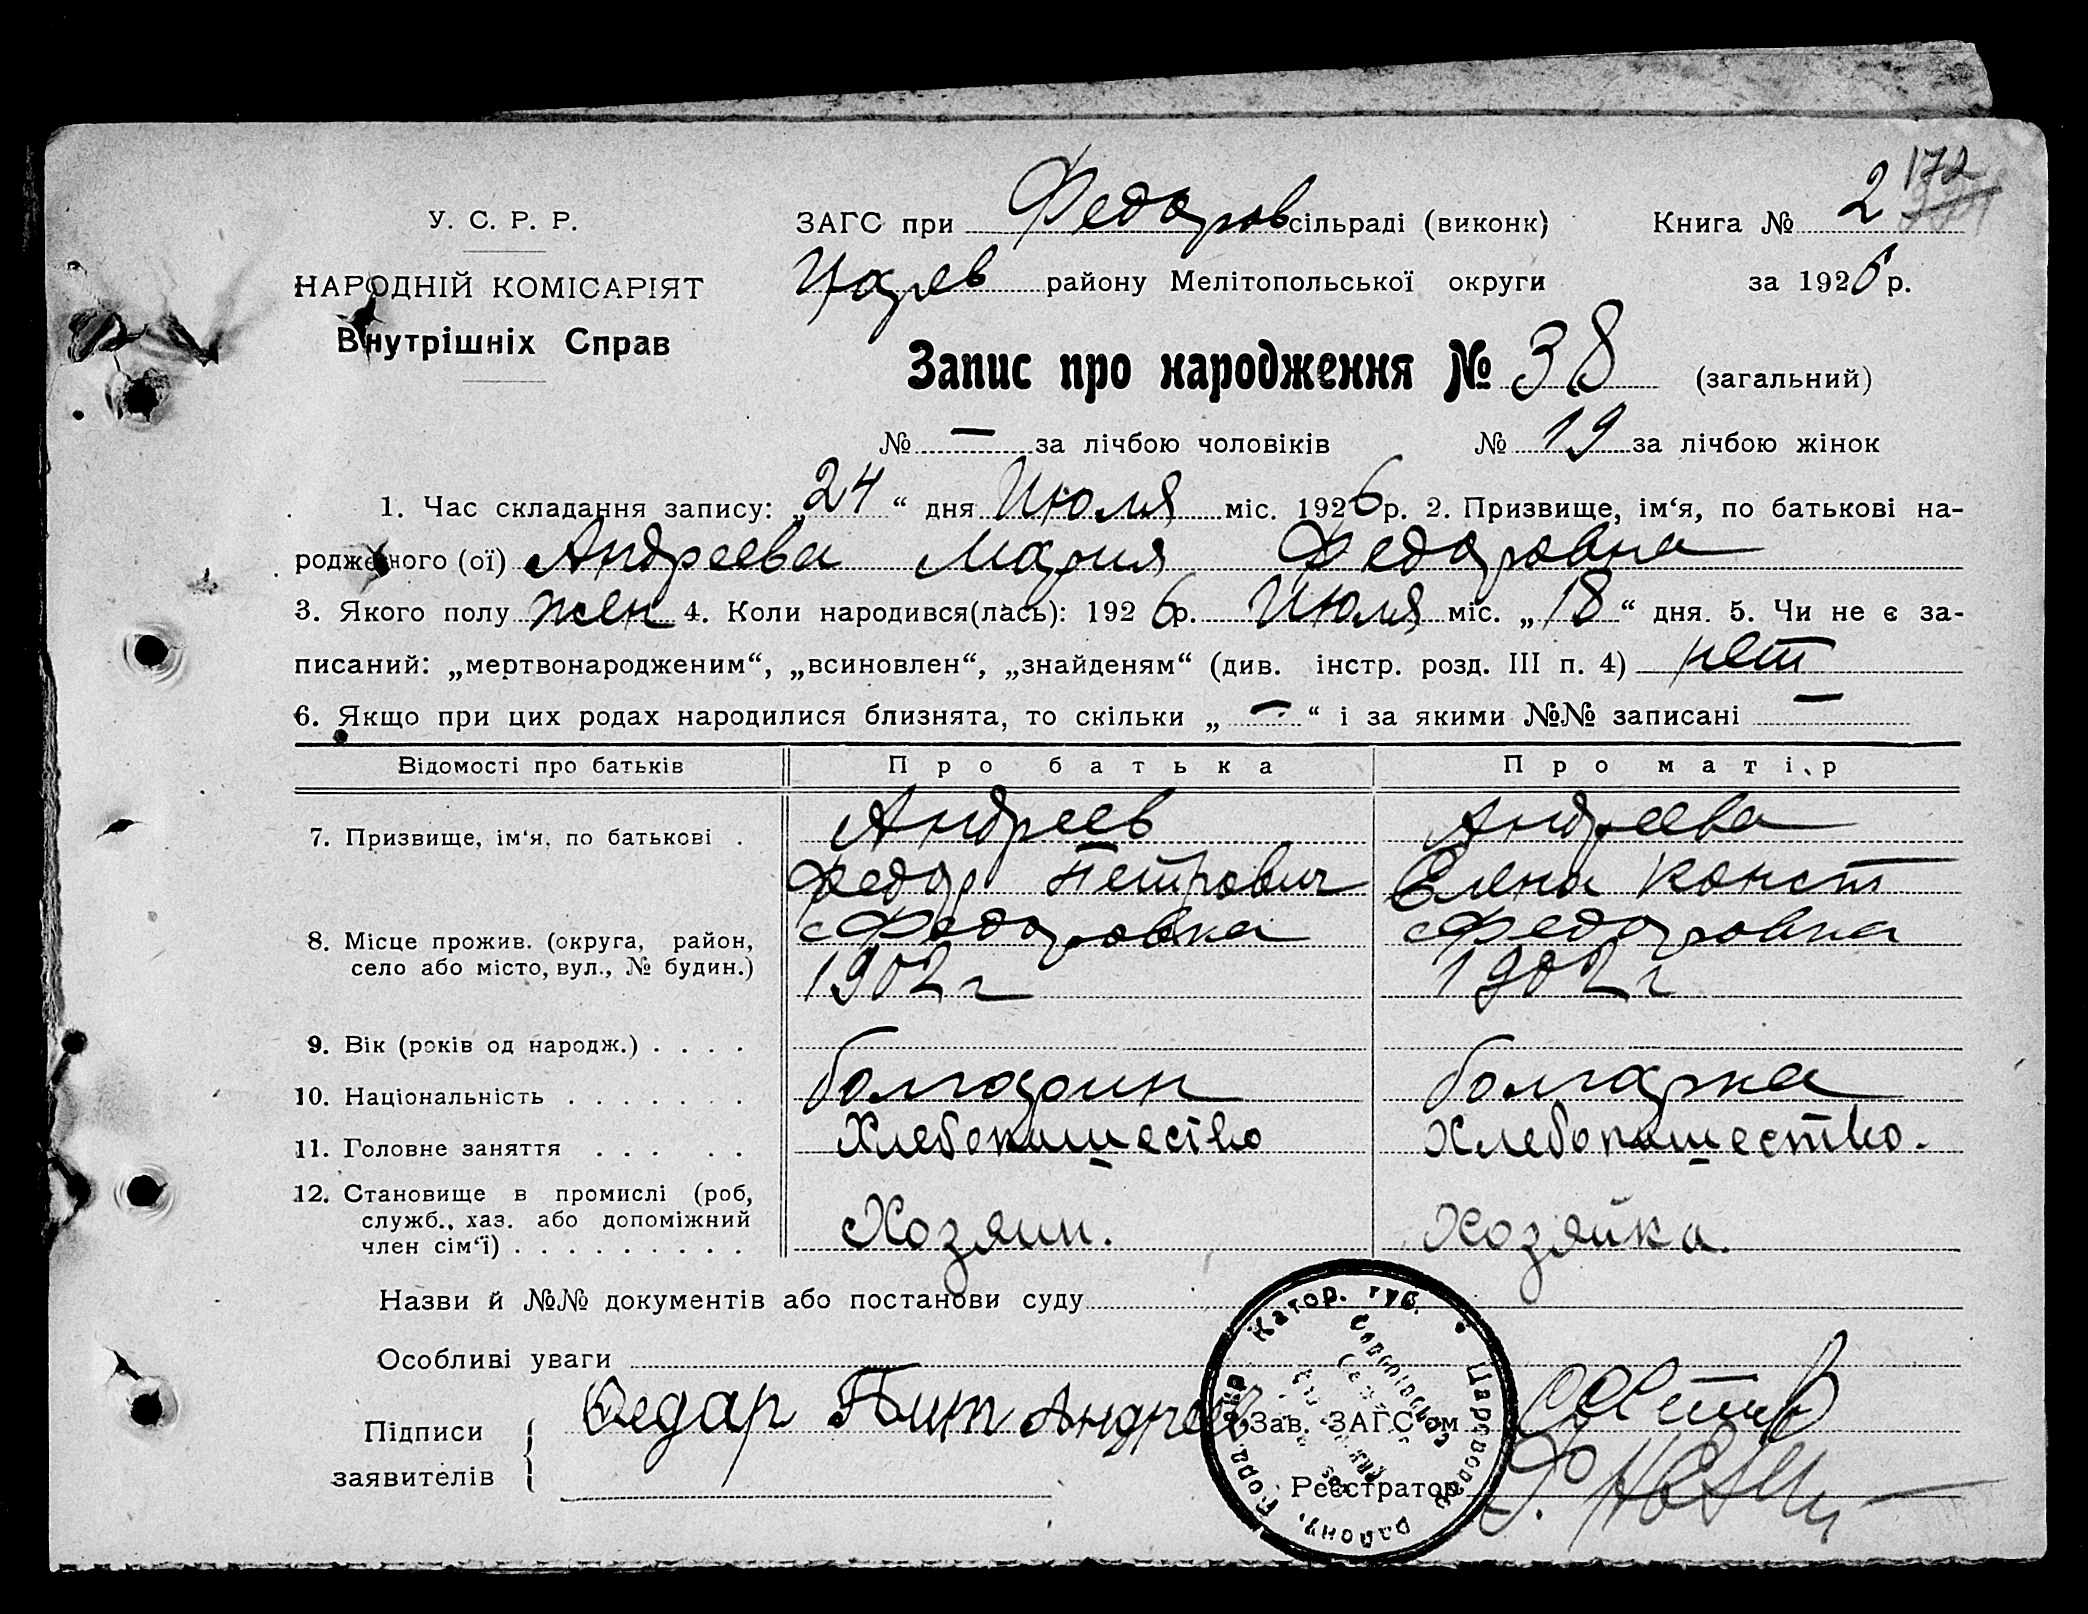 172
У. С. Р. Р.
НАРОДНІЙ КОМІСАРІЯТ
Внутрішніх Справ
ЗАГС при Федоров сільраді (виконк)
Книга № 2
Царев району Мелітопольської округи
за 1926 р.
Запис про народження № 38 (загальний)
№ — за лічбою чоловіків № 19 за лічбою жінок
1. Час складання запису: „24“ дня Июля міс. 1926 р. 2. Призвище, ім‘я, по батькові на-
родженого (ої) Андреева Мария Федоровна
3. Якого полу жен 4. Коли народився(лась): 1926 р. Июля міс. „18“ дня. 5. Чи не є за-
писаний: „мертвонародженим“, „всиновлен“, „знайденям“ (див. інстр. розд. III п. 4) нет
6. Якщо при цих родах народилися близнята, то скільки „—“ і за якими №№ записані —
Відомості про батьків Про батька Про матір
7. Призвище, ім‘я, по батькові . Андреев Андреева
Федор Петрович Елена Конст
8. Місце прожив. (округа, район, с Федоровка с Федоровка
село або місто, вул., № будин.) 1902 г 1902 г
9. Вік (років од народж.) . . . .
10. Національність . . . . . . . болгарин болгарка
11. Головне заняття . . . . . Хлебопашество Хлебопашество.
12. Становище в промислі (роб,
служб., хаз. або допоміжний Хозяин. Хозяйка.
член сім‘ї) . . . . . . . . .
Назви й №№ документів або постанови суду
Особливі уваги
Підписи
заявителів
Федар Пит Андреев
Зав. ЗАГС‘ом
Реєстратор
Катор. губ. Царевода району,